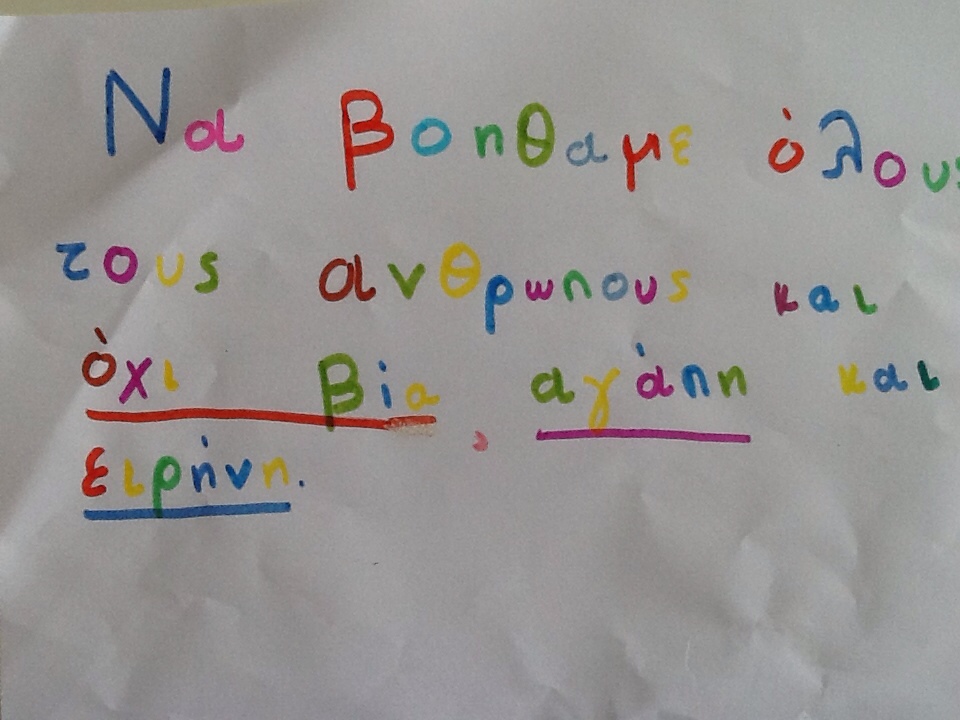 Να βοηθαμε όλους
τους ανθρωπους και
όχι βία, αγάπη και
ειρήνη.